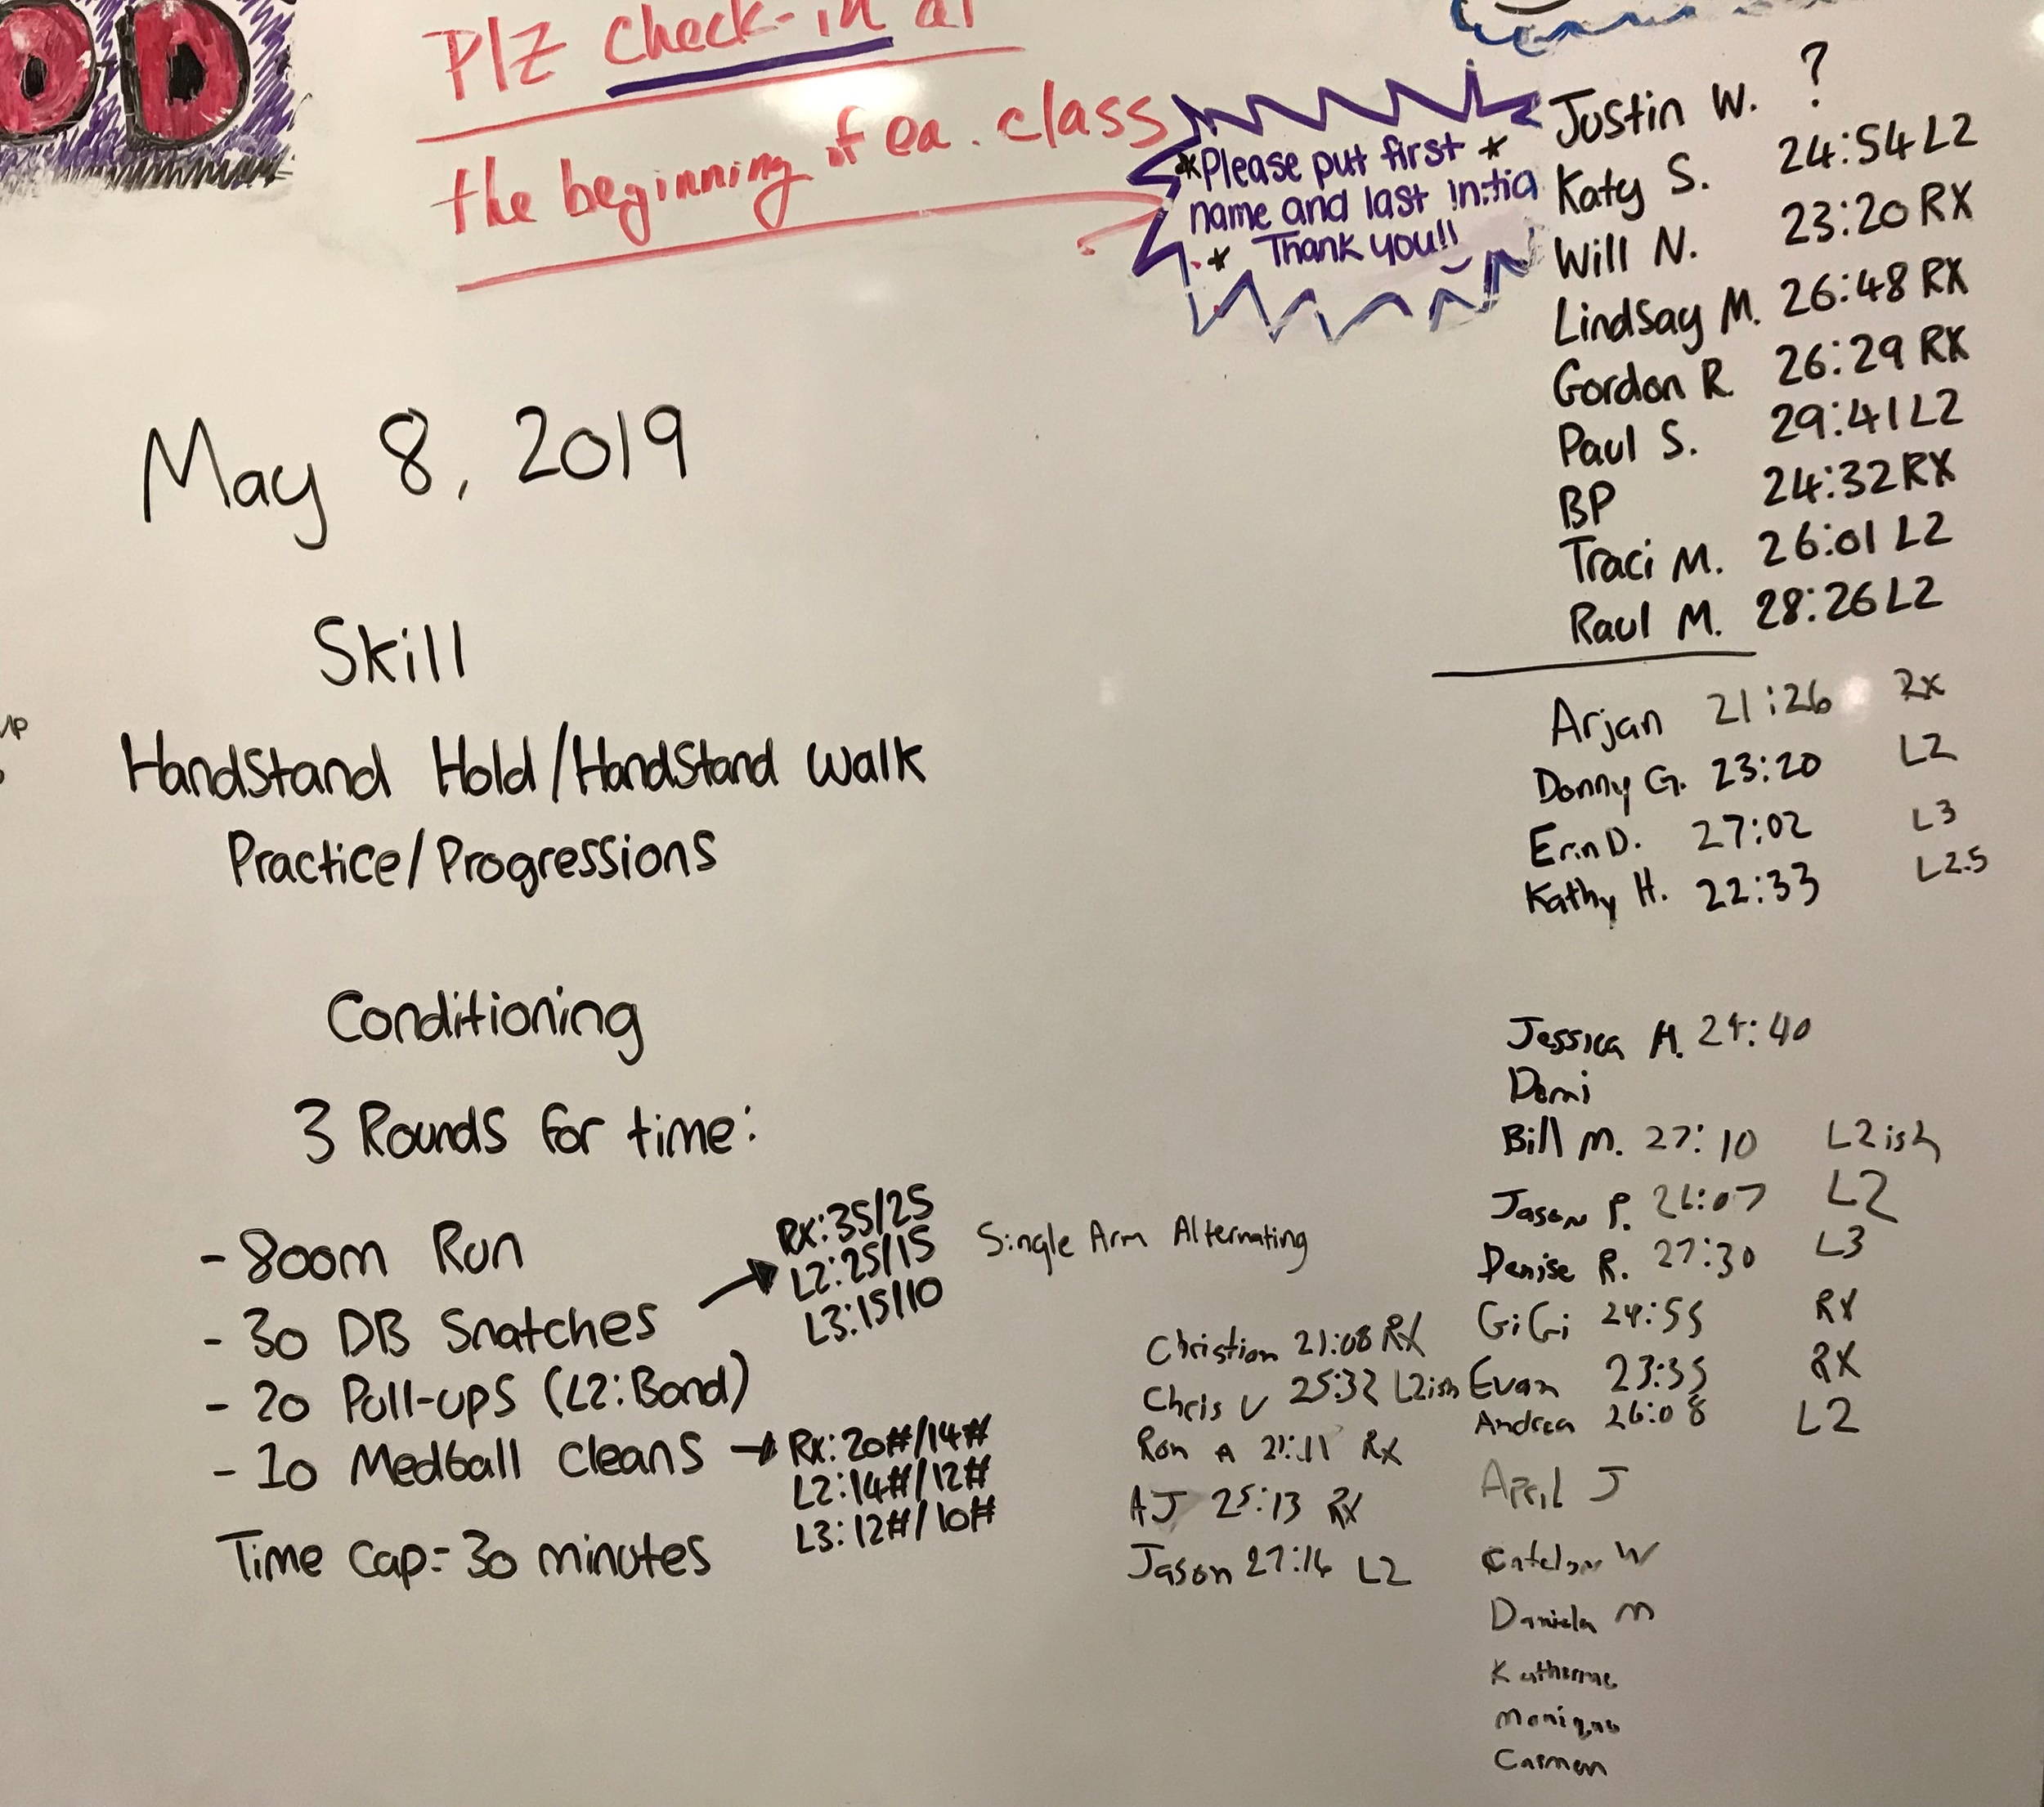 OD
Plz check-in at
the beginning of ea. class
*Please put first *
name and last initia
* Thank you!!
May 8, 2019
Skill
Handstand Hold/Handstand Walk
Practice/Progressions
Conditioning
3 Rounds for time:
- 800m Run
- 30 DB Snatches
Rx: 35/25
L2: 25/15
L3: 15/10
Single Arm Alternating
- 20 Pull-ups (L2: Band)
- 10 Medball Cleans
Rx: 20#/14#
L2: 14#/12#
L3: 12#/10#
Time Cap = 30 minutes
Justin W. ?
Katy S. 24:54 L2
Will N. 23:20 RX
Lindsay M. 26:48 RX
Gordon R. 26:29 RX
Paul S. 29:41 L2
BP 24:32 RX
Traci M. 26:01 L2
Raul M. 28:26 L2
Arjan 21:26 Rx
Donny G. 23:20 L2
Erin D. 27:02 L3
Kathy H. 22:33 L2.5
Jessica H. 24:40
Demi
Bill M. 27:10 L2ish
Jason P. 26:07 L2
Denise R. 27:30 L3
GiGi 24:55 RX
Evan 23:35 RX
Andrea 26:08 L2
April J
W
Daniela M
Katherine
Monique
Carmen
Christian 21:08 RX
Chris V 25:32 L2ish
Ron A 21:11 RX
AJ 25:13 RX
Jason 27:16 L2